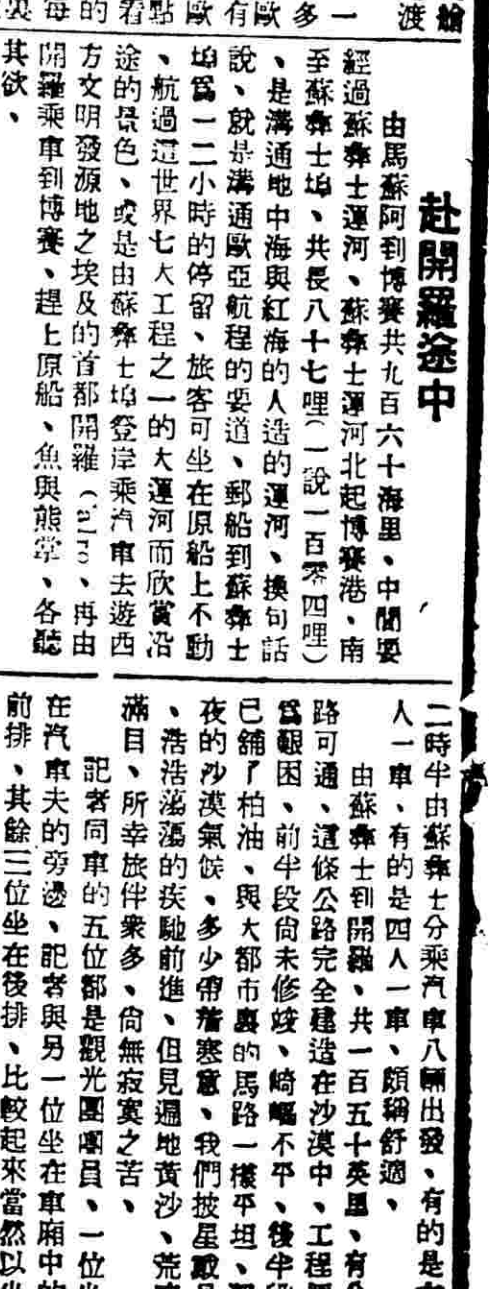 艙
渡
一
多
歐
有
歐
點
看
的
每
赴開羅途中
由馬蘇阿到博賽共九百六十海里、中間要
經過蘇彝士運河、蘇彝士運河北起博賽港、南
至蘇彝士埠、共長八十七哩(一說一百零四哩)
、是溝通地中海與紅海的人造的運河、換句話
說、就是溝通歐亞航程的要道、郵船到蘇彝士
埠爲一二小時的停留、旅客可坐在原船上不動
、航過這世界七大工程之一的大運河而欣賞沿
途的景色、或是由蘇彝士埠登岸乘汽車去遊西
方文明發源地之埃及的首都開羅(、再由
開羅乘車到博賽、趕上原船、魚與熊掌、各聽
其欲、
二時半由蘇彝士分乘汽車八輛出發、有的是
人一車、有的是四人一車、頗稱舒適、
由蘇彝士到開羅、共一百五十英里、有
路可通、這條公路完全建造在沙漠中、工程
爲艱困、前半段尙未修竣、崎嶇不平、後半
已舖了柏油、與大都市裏的馬路一樣平坦、
夜的沙漠氣候、多少帶着寒意、我們披星戴
、浩浩蕩蕩的疾馳前進、但見遍地黃沙、荒
滿目、所幸旅伴衆多、尙無寂寞之苦、
記者同車的五位都是觀光團團員、一位
在汽車夫的旁邊、記者與另一位坐在車廂中的
前排、其餘三位坐在後排、比較起來當然以